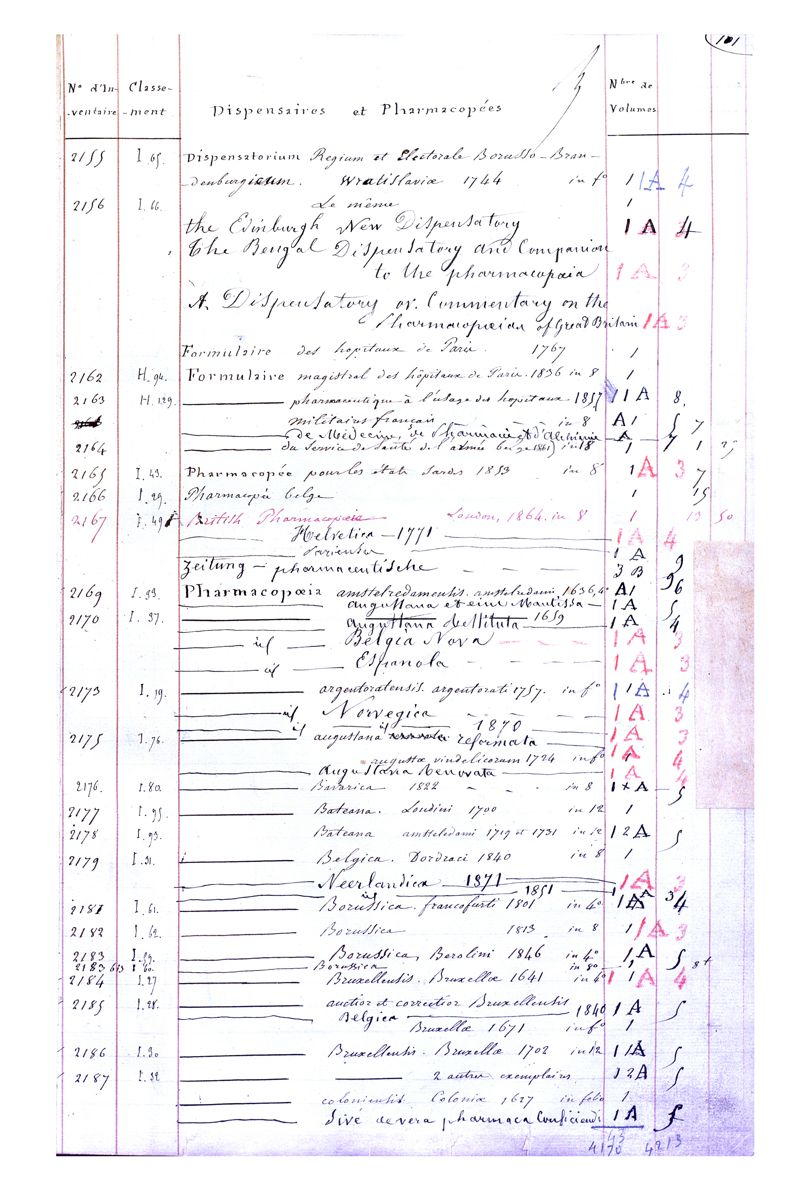 101
N° d'In-ventaire Classe-ment Dispensaires et Pharmacopées Nbre de Volumes
2155 I. 65. Dispensatorium Regium et Electorale Borusso-Bran-
-denburgicum. Wratislaviæ 1744 in f° 1 1A 4
2156 I. 66. Le même 1
the Edinburgh New Dispensatory 1 A 4
The Bengal Dispensatory and Companion
to the pharmacopœia 1 A 3
A Dispensatory or Commentary on the
Pharmacopœias of Great Britain 1A 3
Formulaire des hopitaux de Paris. 1767 1
2162 H. 94. Formulaire magistral des hôpitaux de Paris. 1836 in 8 1
2163 H. 129. pharmaceutique à l'usage des hopitaux 1857 11A 8.
militaires français in 8 A1 5 7
de Médecine, de Pharmacie et d'Alchimie A
2164 du Service de Santé de l'armée belge 1861) in 18 1 7 1
2165 I. 43. Pharmacopée pour les états Sardes 1853 in 8° 1 A 3 7
2166 I. 29. Pharmacopée belge 1 15
2167 I. 49 British Pharmacopœia London, 1864. in 8 1 13 50
Helvetica - 1771 1 A 4
Pariensis 1 A
Zeitung - pharmaceutische 3 B 9
2169 I. 33. Pharmacopœia amstelredamensis. amstelædami. 1636, 4° A1 96
augustana et eine Mantissa 1A 5
2170 I. 37. augustana 1659 1 A 4
id Belgia Nova 1 A 3
id Espanola 1 A 3
2173 I. 19. argentoratensis. argentorati 1757. in f° 1 1A 4
id Norvegica 1A 3
id id 1870 1A 3
2175 I. 76. augustana reformata
augustæ vindelicorum 1724 in f° 1A 4
Augustana Renovata 1 A 4
2176. I. 80. Bavarica 1822 in 8 1 A 5
2177 I. 95. Bateana. Londini 1700 in 12 1
2178 I. 93. Bateana amstelædami 1719 et 1731 in 12 1 2A 5
2179 I. 31. Belgica. Dordraci 1840 in 8 1
Neerlandica 1871 1A 3
id 1851 1 A 3
2181 I. 61. Borussica. francofurti 1801 in 4° 1A 4
2182 I. 62. Borussica 1813 in 8 1 1A 3
2183 I. 59. Borussica, Berolini 1846 in 4° 1A 5
2183 I 60. Borussica in 8° 1
2184 I. 27 Bruxellensis. Bruxellæ 1641 in 4° 1 1 A 4
2185 I. 28. auctior et correctior Bruxellensis
Belgica 1840 1 A 5
Bruxellæ 1671 in f° 1
2186 I. 30 Bruxellensis. Bruxellæ 1702 in 12 1 1A 5
2187 I. 32 2 autres exemplaires 1 2A 5
coloniensis Coloniæ 1627 in folio 1
Sivé de vera pharmaca Conficiendi 1A 5
43
4170 4213